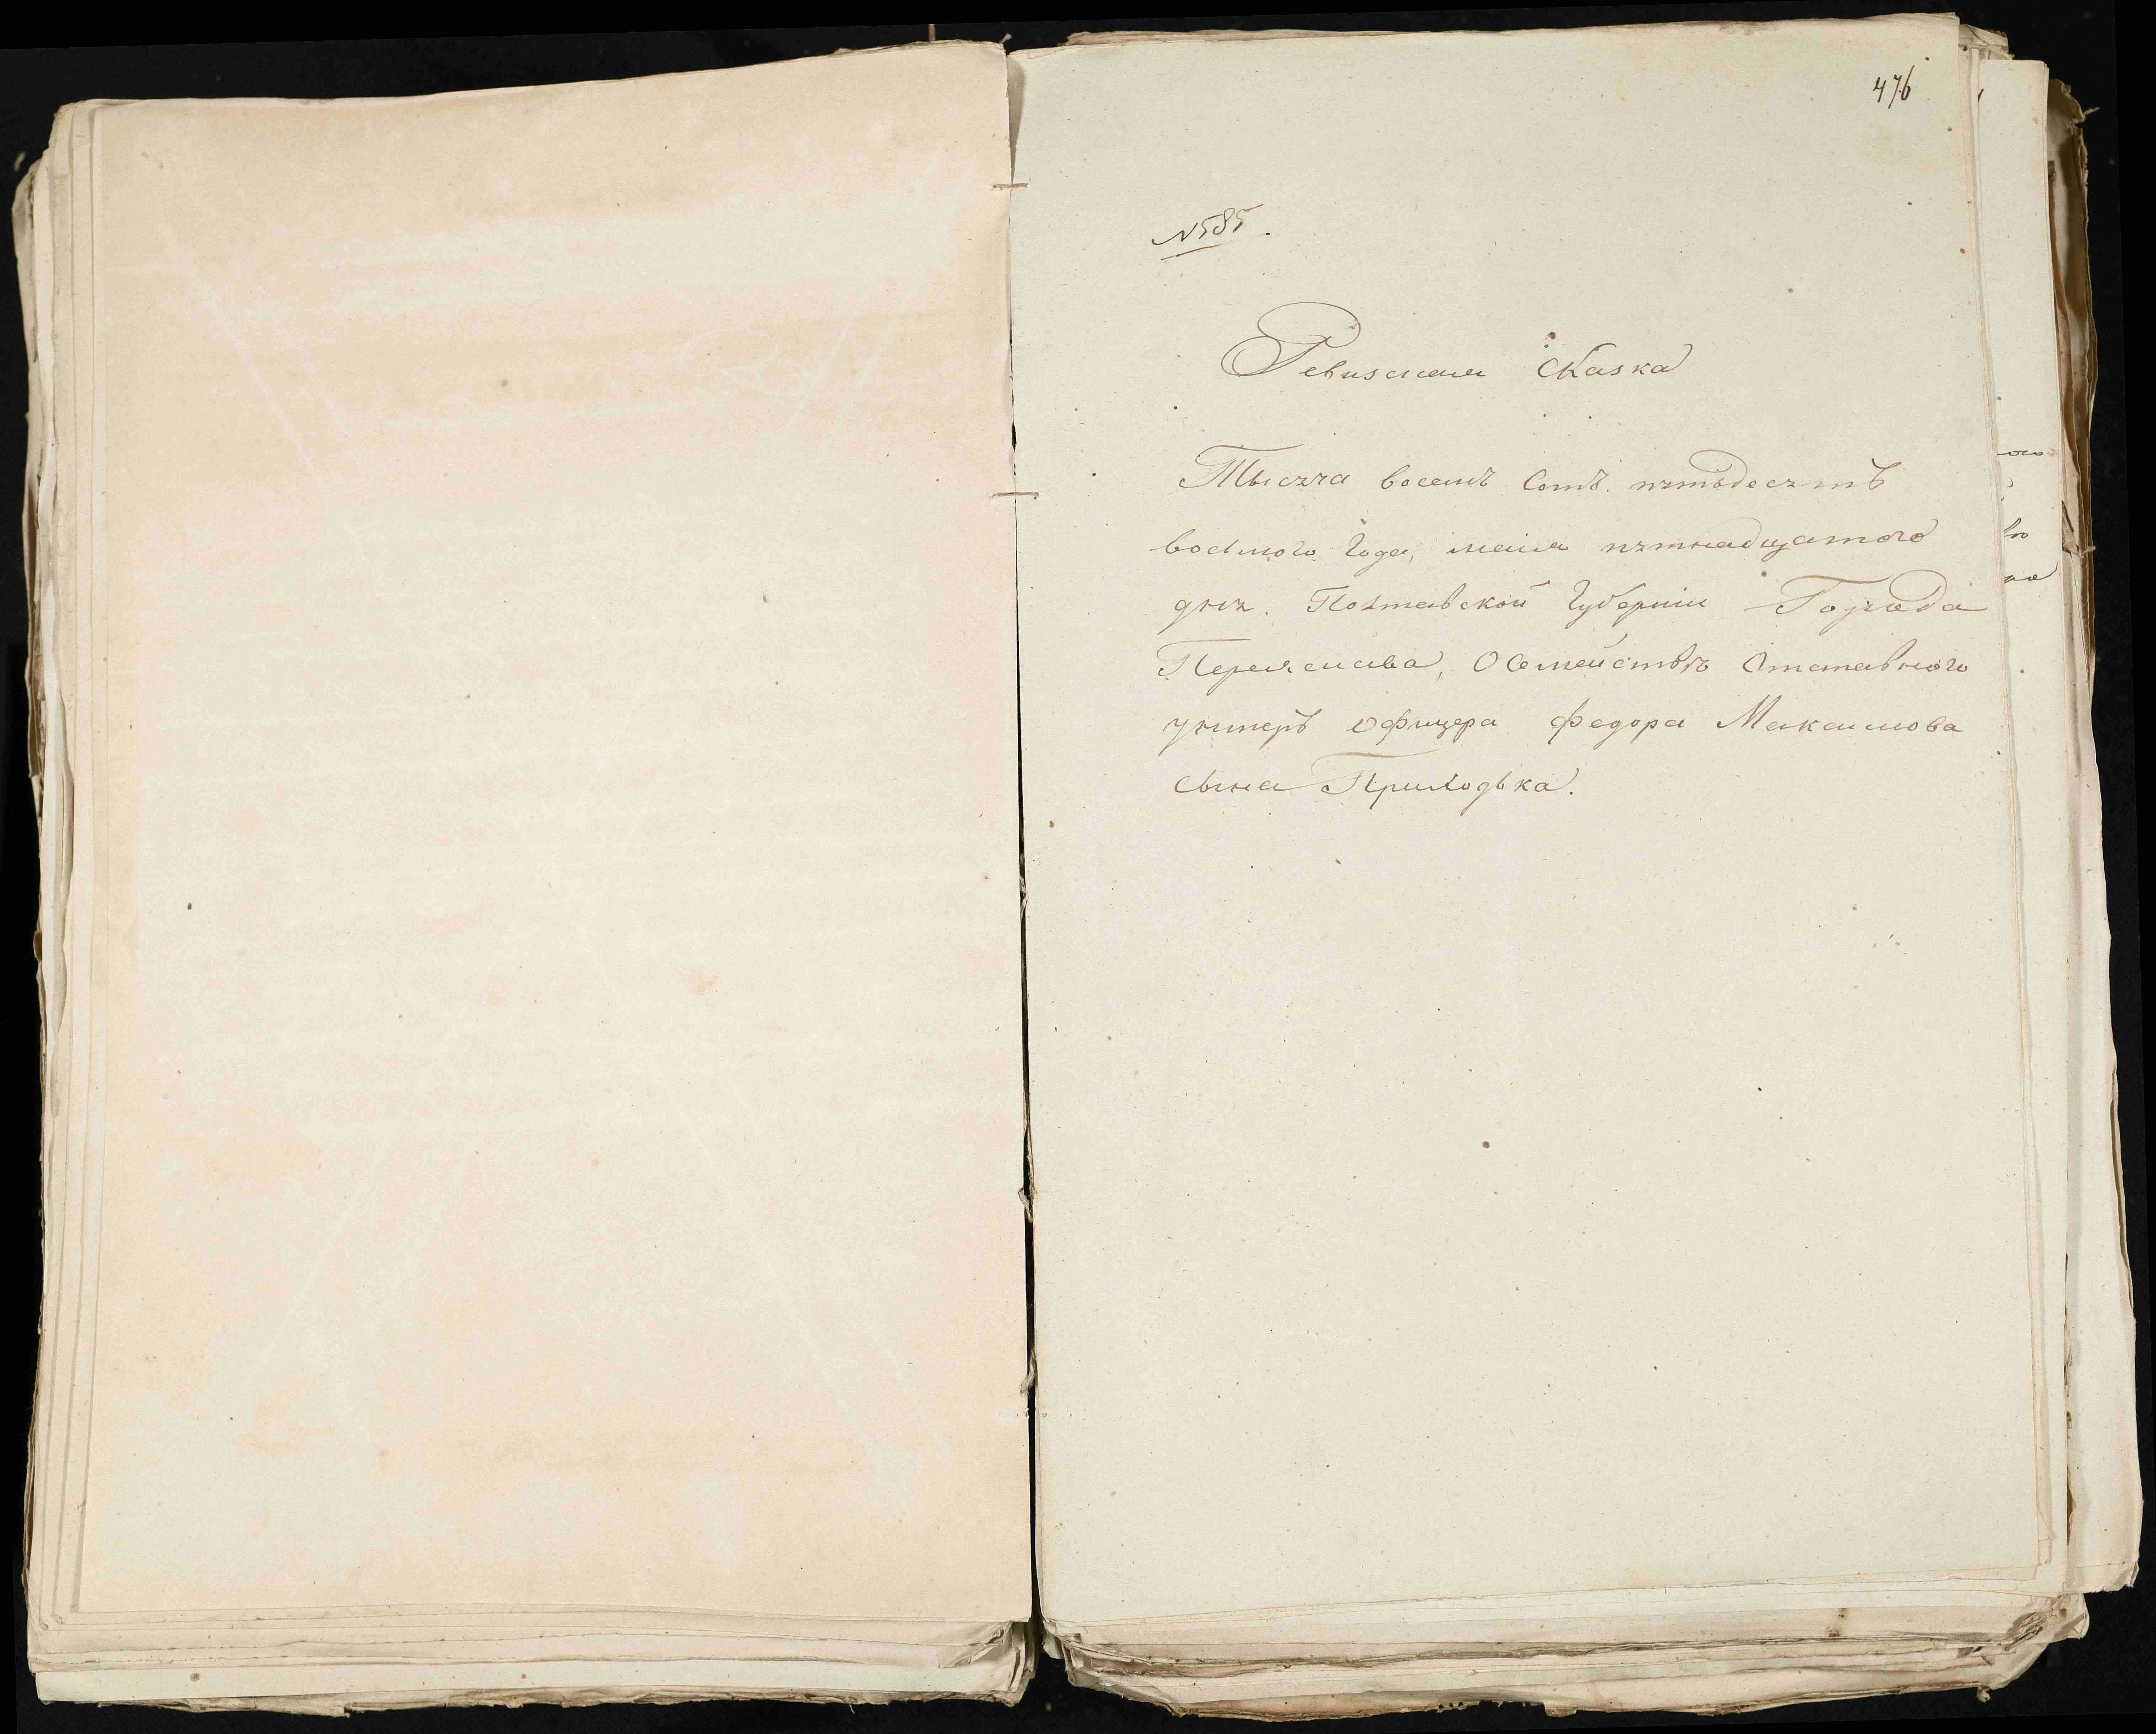 476
№585.
Ревизская Сказка
Тысяча восемъ Сотъ пятьдесятъ
восмого Года, маия пятнадцатого
дня. Полтавской Губерніи Города
Переяслава, О Семействѣ Отставного
унтеръ офицера Федора Максимова
сына Приходька.